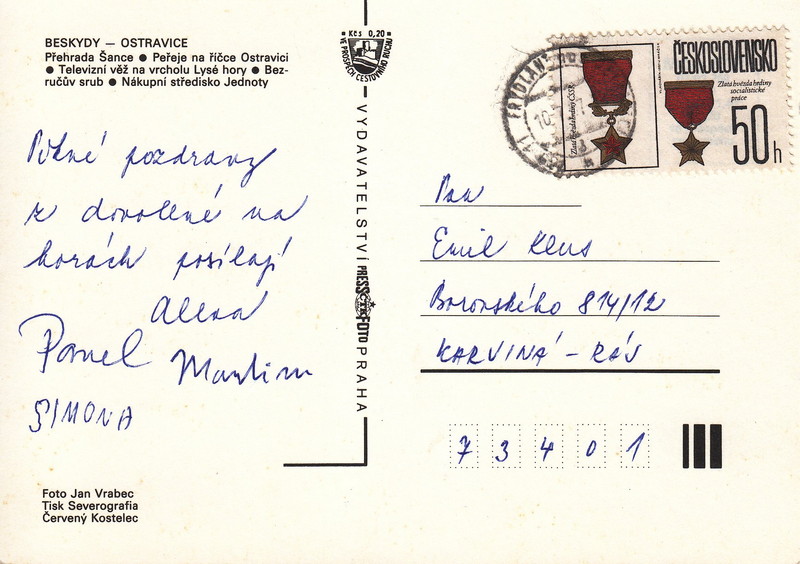 BESKYDY — OSTRAVICE
Přehrada Šance ● Peřeje na říčce Ostravici
● Televizní věž na vrcholu Lysé hory ● Bez-
ručův srub ● Nákupní středisko Jednoty
Pěkné pozdravy
z dovolené na
horách posílají
Alena
Pavel Martin
SIMONA
Foto Jan Vrabec
Tisk Severografia
Červený Kostelec
Kčs 0,20
VE PROSPĚCH CESTOVNÍHO RUCHU
VYDAVATELSTVÍ PRESSFOTO PRAHA
ČTK
FRÝDLANT
ČESKOSLOVENSKO
Zlatá hvězda hrdiny ČSSR
Zlatá hvězda hrdiny
socialistické
práce
50h
Pan
Emil Klus
Borovského 814/12
KARVINÁ - RÁJ
73401